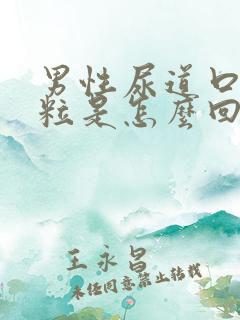 男性尿道口
粒是怎麽回
王永昌
未经同意禁止转载